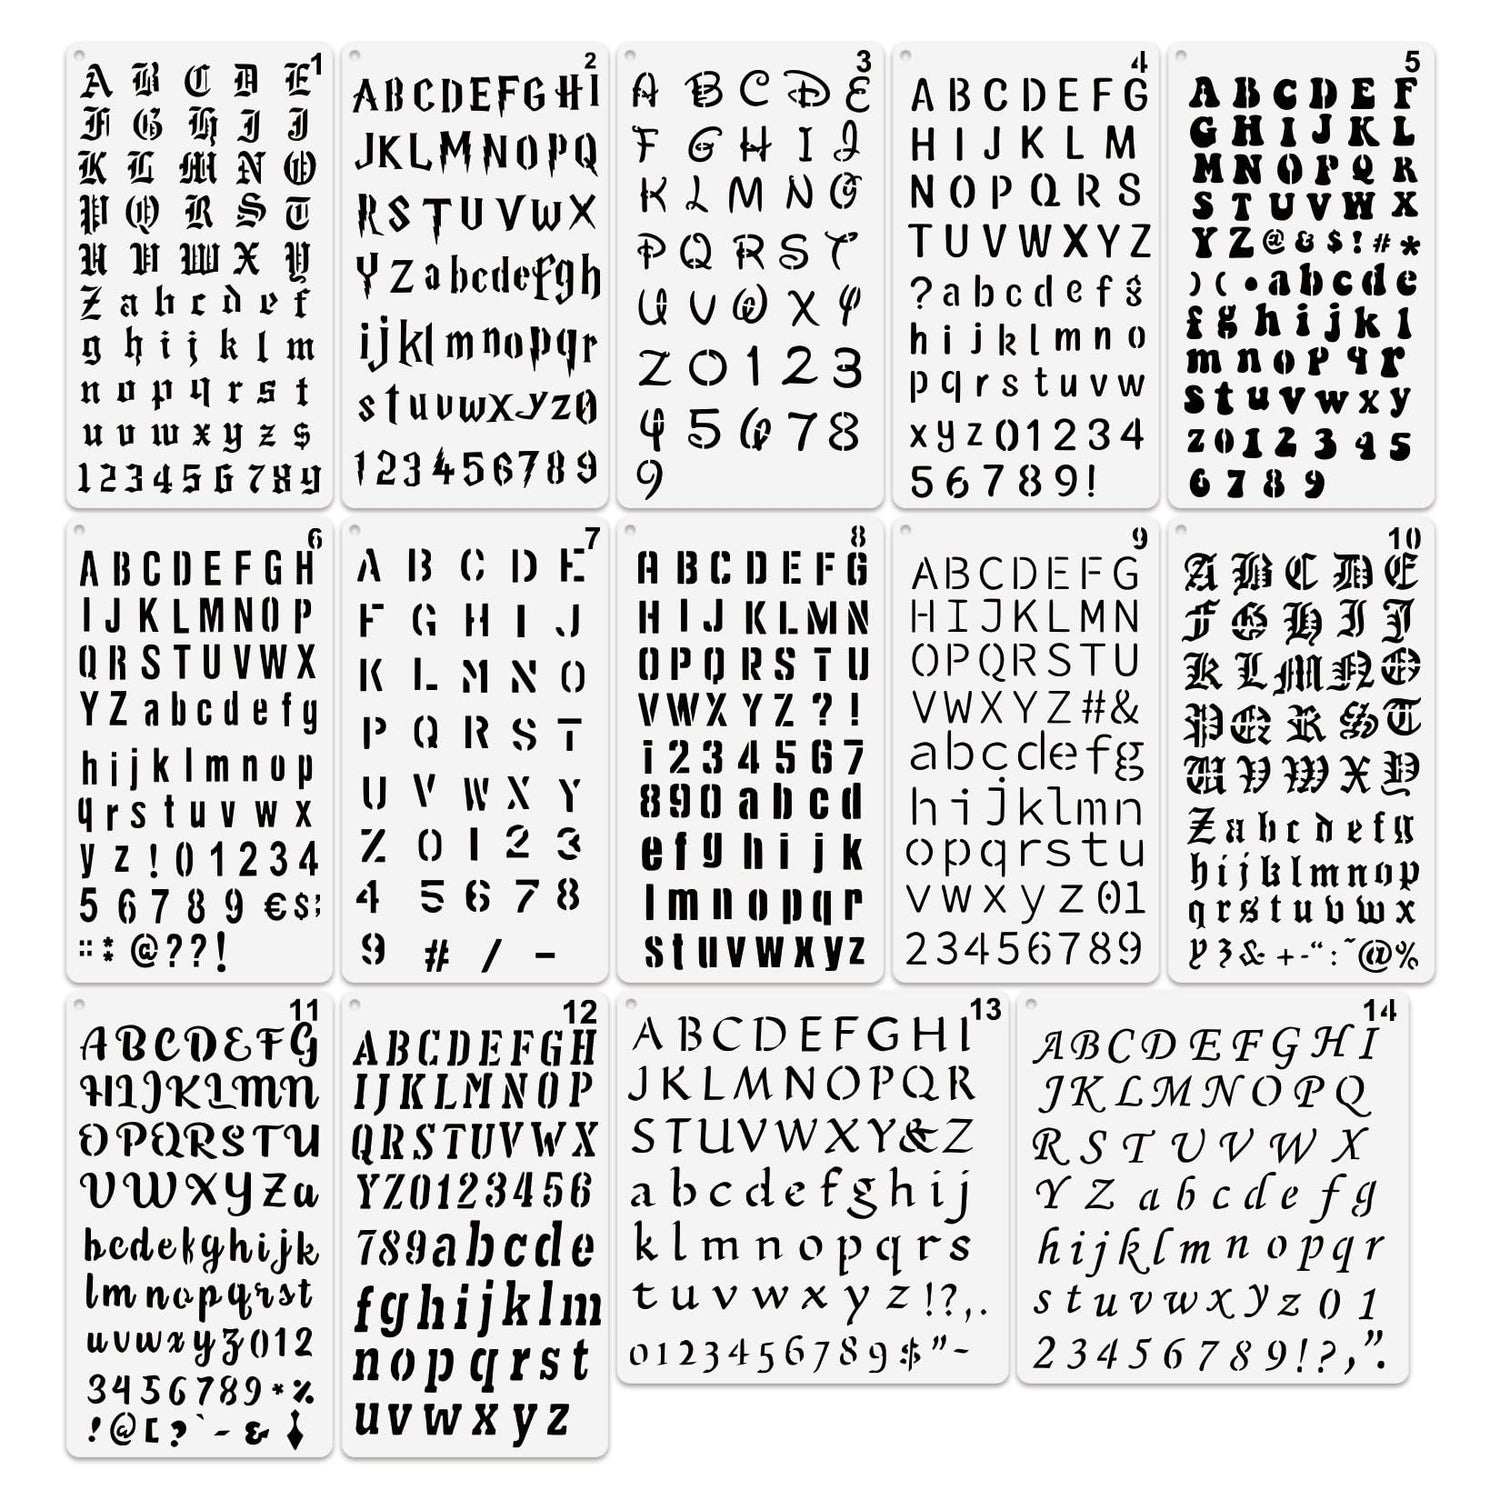 1
A B C D E
F G H I J
K L M N O
P Q R S T
U V W X Y
Z a b c d e f
g h i j k l m
n o p q r s t
u v w x y z $
1 2 3 4 5 6 7 8 9
2
A B C D E F G H I
J K L M N O P Q
R S T U V W X
Y Z a b c d e f g h
i j k l m n o p q r
s t u v w x y z 0
1 2 3 4 5 6 7 8 9
3
A B C D E
F G H I J
K L M N O
P Q R S T
U V W X Y
Z 0 1 2 3
4 5 6 7 8
9
4
A B C D E F G
H I J K L M
N O P Q R S
T U V W X Y Z
? a b c d e f g
h i j k l m n o
p q r s t u v w
x y z 0 1 2 3 4
5 6 7 8 9 !
5
A B C D E F
G H I J K L
M N O P Q R
S T U V W X
Y Z @ & $ ! # *
) ( • a b c d e
f g h i j k l
m n o p q r
s t u v w x y
z 0 1 2 3 4 5
6 7 8 9
6
A B C D E F G H
I J K L M N O P
Q R S T U V W X
Y Z a b c d e f g
h i j k l m n o p
q r s t u v w x
y z ! 0 1 2 3 4
5 6 7 8 9 € $ ;
:: : @ ? ? !
7
A B C D E
F G H I J
K L M N O
P Q R S T
U V W X Y
Z 0 1 2 3
4 5 6 7 8
9 # / -
8
A B C D E F G
H I J K L M N
O P Q R S T U
V W X Y Z ? !
1 2 3 4 5 6 7
8 9 0 a b c d
e f g h i j k
l m n o p q r
s t u v w x y z
9
A B C D E F G
H I J K L M N
O P Q R S T U
V W X Y Z # &
a b c d e f g
h i j k l m n
o p q r s t u
v w x y z 0 1
2 3 4 5 6 7 8 9
10
A B C D E
F G H I J
K L M N O
P Q R S T
U V W X Y
Z a b c d e f g
h i j k l m n o p
q r s t u v w x
y z & + - “ : ~ @ %
11
A B C D E F G
H I J K L M N
O P Q R S T U
V W X Y Z a
b c d e f g h i j k
l m n o p q r s t
u v w x y z 0 1 2
3 4 5 6 7 8 9 * %
! @ [ ? ` - & ♦
12
A B C D E F G H
I J K L M N O P
Q R S T U V W X
Y Z 0 1 2 3 4 5 6
7 8 9 a b c d e
f g h i j k l m
n o p q r s t
u v w x y z
13
A B C D E F G H I
J K L M N O P Q R
S T U V W X Y & Z
a b c d e f g h i j
k l m n o p q r s
t u v w x y z ! ? , .
0 1 2 3 4 5 6 7 8 9 $ ” ~
14
A B C D E F G H I
J K L M N O P Q
R S T U V W X
Y Z a b c d e f g
h i j k l m n o p q r
s t u v w x y z 0 1
2 3 4 5 6 7 8 9 ! ? , ” .